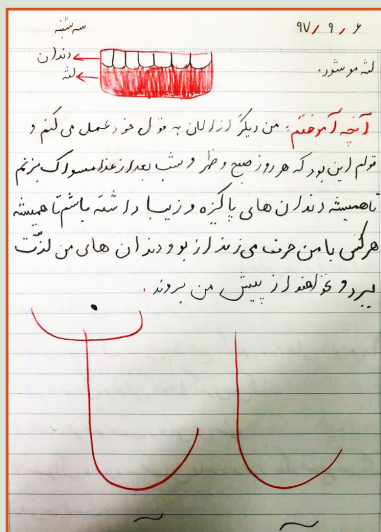 سه شنبه ۹۷/۹/۶
دندان
لثه
لثه می شود.
آنچه آموختم: من دیگر از الان به قول خود عمل می کنم و
قولم این بود که هر روز صبح و ظهر و شب بعد از غذا مسواک بزنم
تا همیشه دندان های پاکیزه و زیبا داشته باشم تا همیشه
هرکس با من حرف می زند از بو و دندان های من لذّت
ببرد و نخواهند از پیش من بروند.